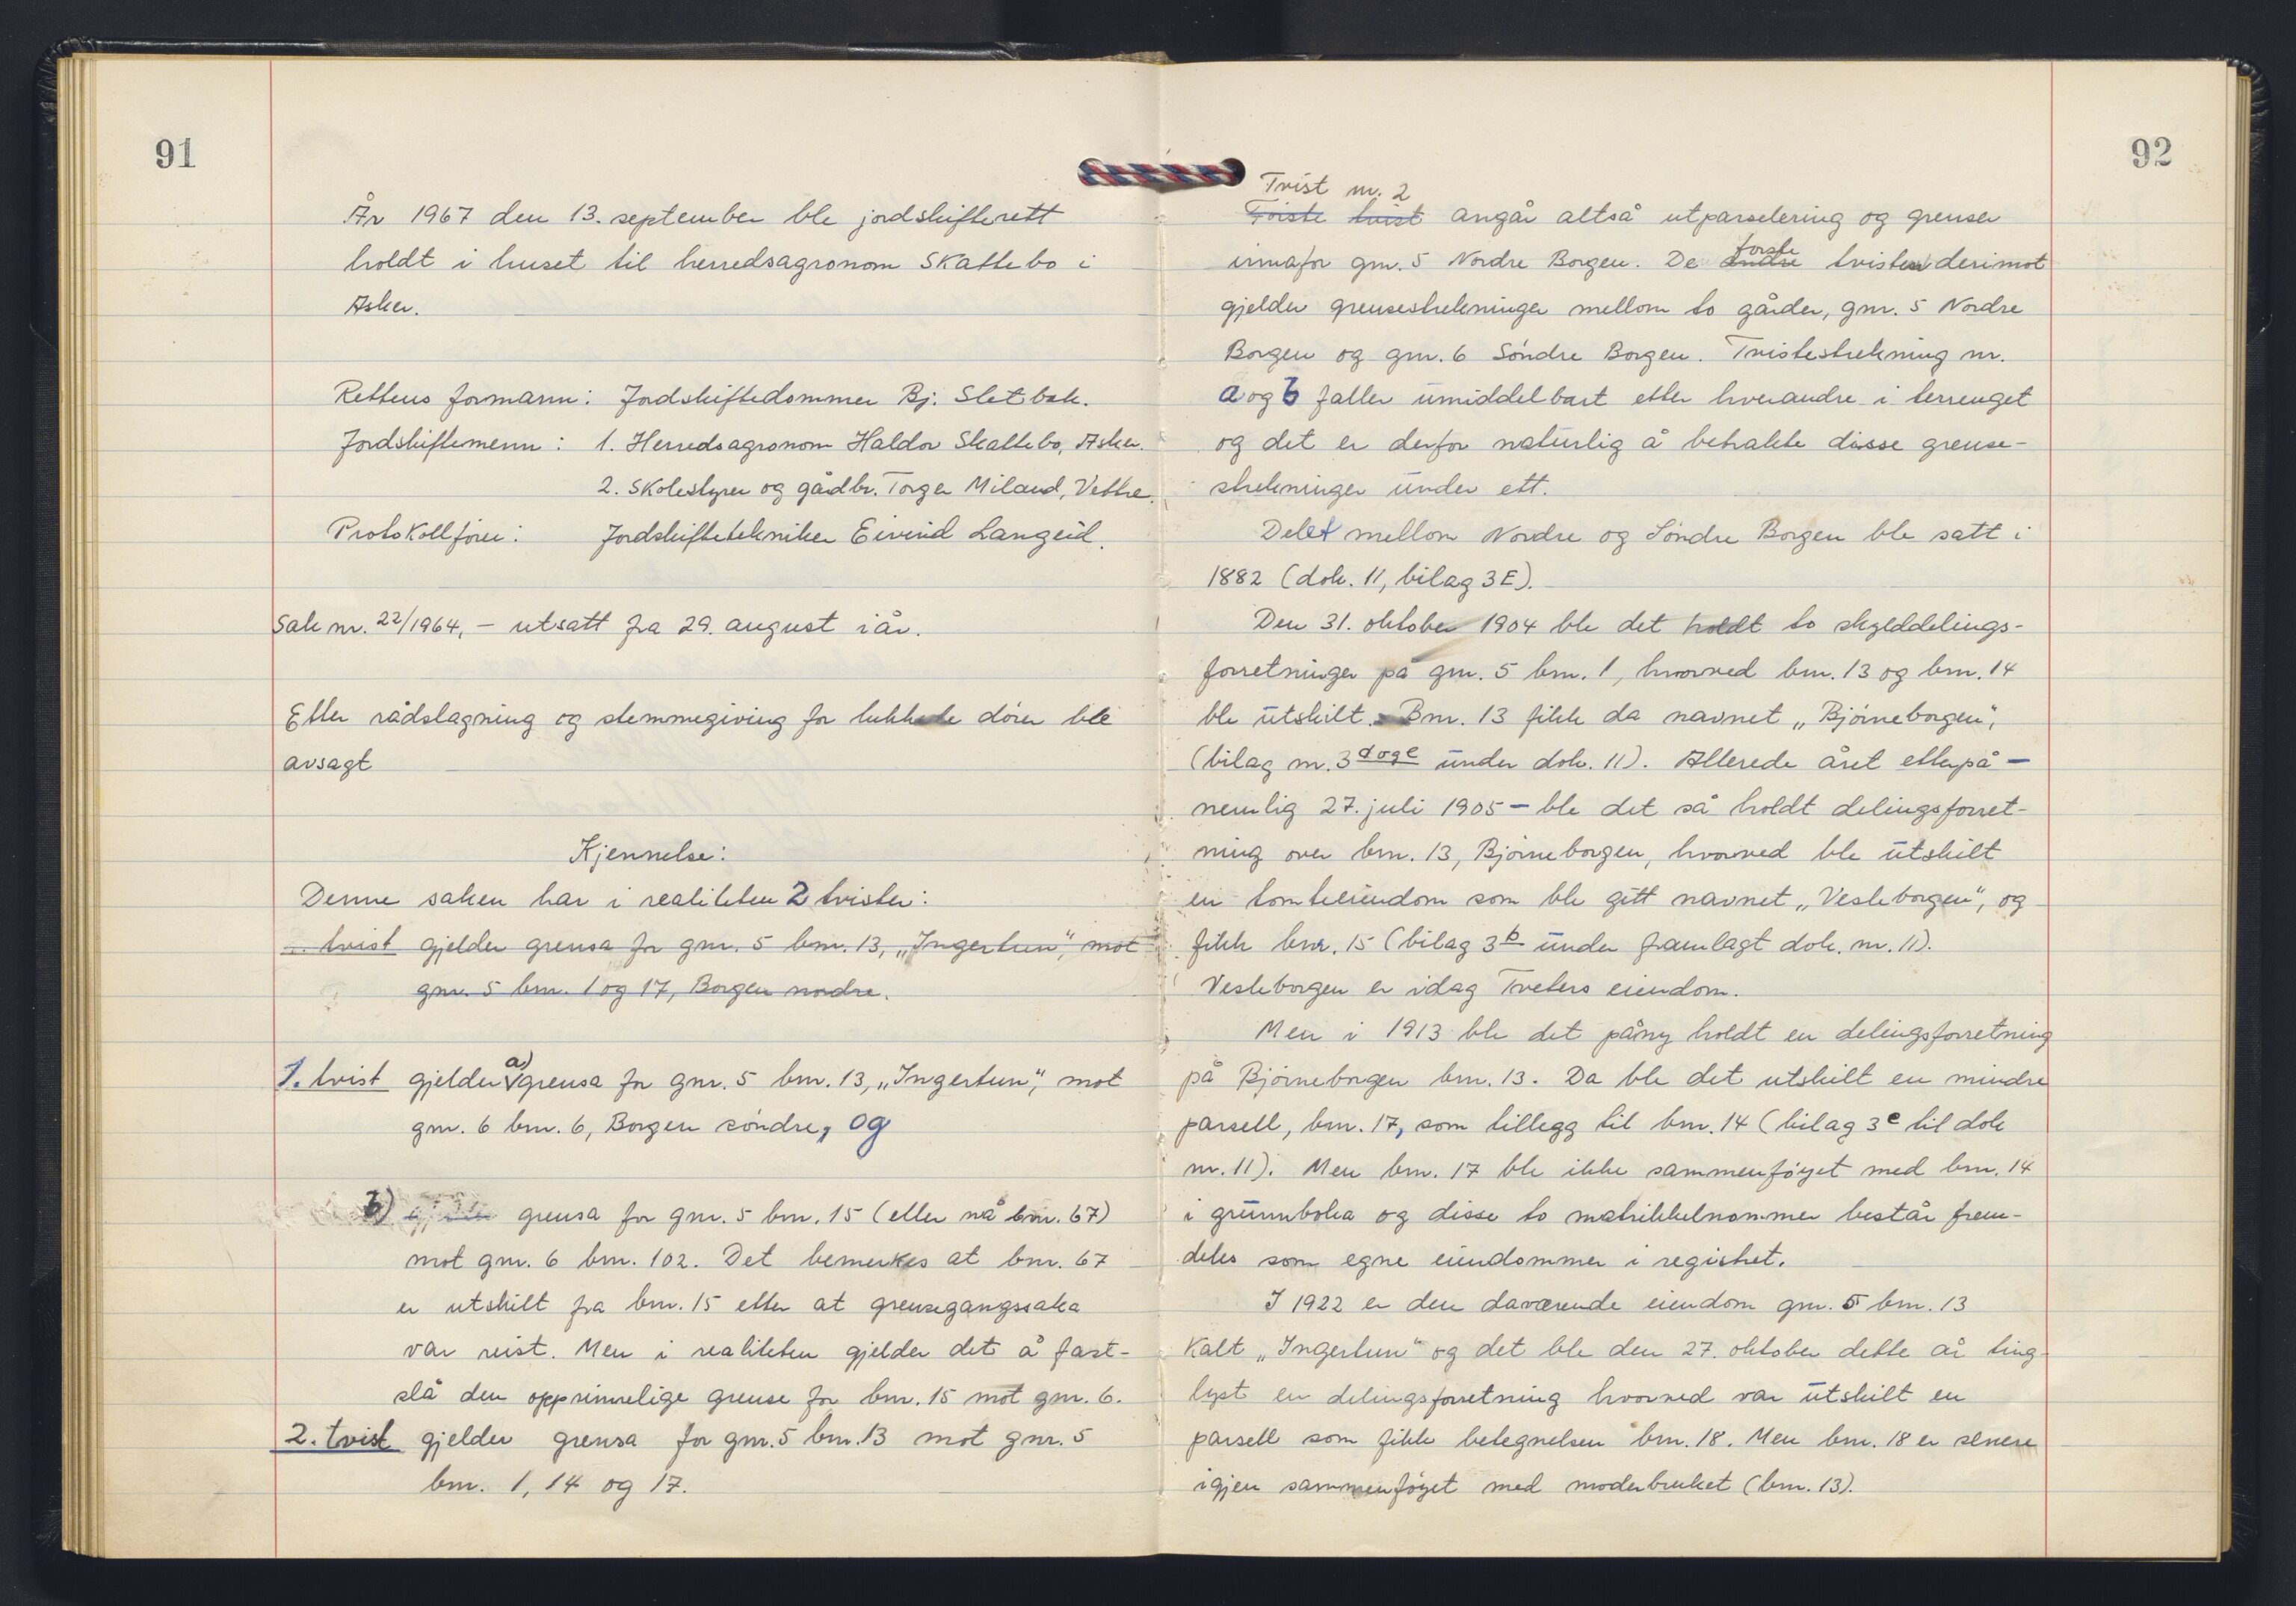 91
År 1967 den 13. september ble jordskifterett
holdt i huset til herredsagronom Skattebo i
Asker.
Rettens formann: Jordskiftedommer Bj. Sletbak.
Jordskiftemenn: 1. Herredsagronom Haldor Skattebo, Asker.
2. Skolestyrer og gårdbr. Torger Miland, Vettre.
Protokollfører: Jordskiftetekniker Eivind Langeid.
Sak nr. 22/1964, – utsatt fra 29. august i år.
Etter rådslagning og stemmegiving for lukkede dører ble
avsagt
Kjennelse:
Denne saken har i realiteten 2 tvister:
tvist gjelder grensa for gnr. 5 bnr. 13, „Ingertun", mot
gnr. 5 bnr. 1 og 17, Borgen nordre.
1. tvist gjelder a) grensa for gnr. 5 bnr. 13, „Ingertun", mot
gnr. 6 bnr. 6, Borgen søndre, og
b) grensa for gnr. 5 bnr. 15 (eller nå bnr. 67)
mot gnr. 6 bnr. 102. Det bemerkes at bnr. 67
er utskilt fra bnr. 15 etter at grensegangssaka
var reist. Men i realiteten gjelder det å fast-
slå den opprinnelige grense for bnr. 15 mot gnr. 6.
2. tvist gjelder grensa for gnr. 5 bnr. 13 mot gnr. 5
bnr. 1, 14 og 17.
92
Tvist nr. 2
Første tvist angår altså utparselering og grenser
innafor gnr. 5 Nordre Borgen. De andre første tvisten derimot
gjelder grensestrekninger mellom to gårder, gnr. 5 Nordre
Borgen og gnr. 6 Søndre Borgen. Tvistestrekning nr.
a og b faller umiddelbart etter hverandre i terrenget
og det er derfor naturlig å betrakte disse grense-
strekninger under ett.
Delet mellom Nordre og Søndre Borgen ble satt i
1882 (dok. 11, bilag 3E).
Den 31. oktober 1904 ble det holdt to skylddelings-
forretninger på gnr. 5 bnr. 1, hvorved bnr. 13 og bnr. 14
ble utskilt. Bnr. 13 fikk da navnet „Bjørneborgen",
(bilag nr. 3 d og e under dok. 11). Allerede året etterpå –
nemlig 27. juli 1905 – ble det så holdt delingsforret-
ning over bnr. 13, Bjørneborgen, hvorved ble utskilt
en tomteeiendom som ble gitt navnet „Vesleborgen", og
fikk bnr. 15 (bilag 3 b under framlagt dok. nr. 11).
Vesleborgen er idag Tveters eiendom.
Men i 1913 ble det påny holdt en delingsforretning
på Bjørneborgen bnr. 13. Da ble det utskilt en mindre
parsell, bnr. 17, som tillegg til bnr. 14 (bilag 3 c til dok
nr. 11). Men bnr. 17 ble ikke sammenføyet med bnr. 14
i grunnboka og disse to matrikkelnommer består frem-
deles som egne eiendommer i registret.
I 1922 er den daværende eiendom gnr. 5 bnr. 13
kalt „Ingertun" og det ble den 27. oktober dette år ting-
lyst en delingsforretning hvorved var utskilt en
parsell som fikk betegnelsen bnr. 18. Men bnr. 18 er senere
igjen sammenføyet med moderbruket (bnr. 13).